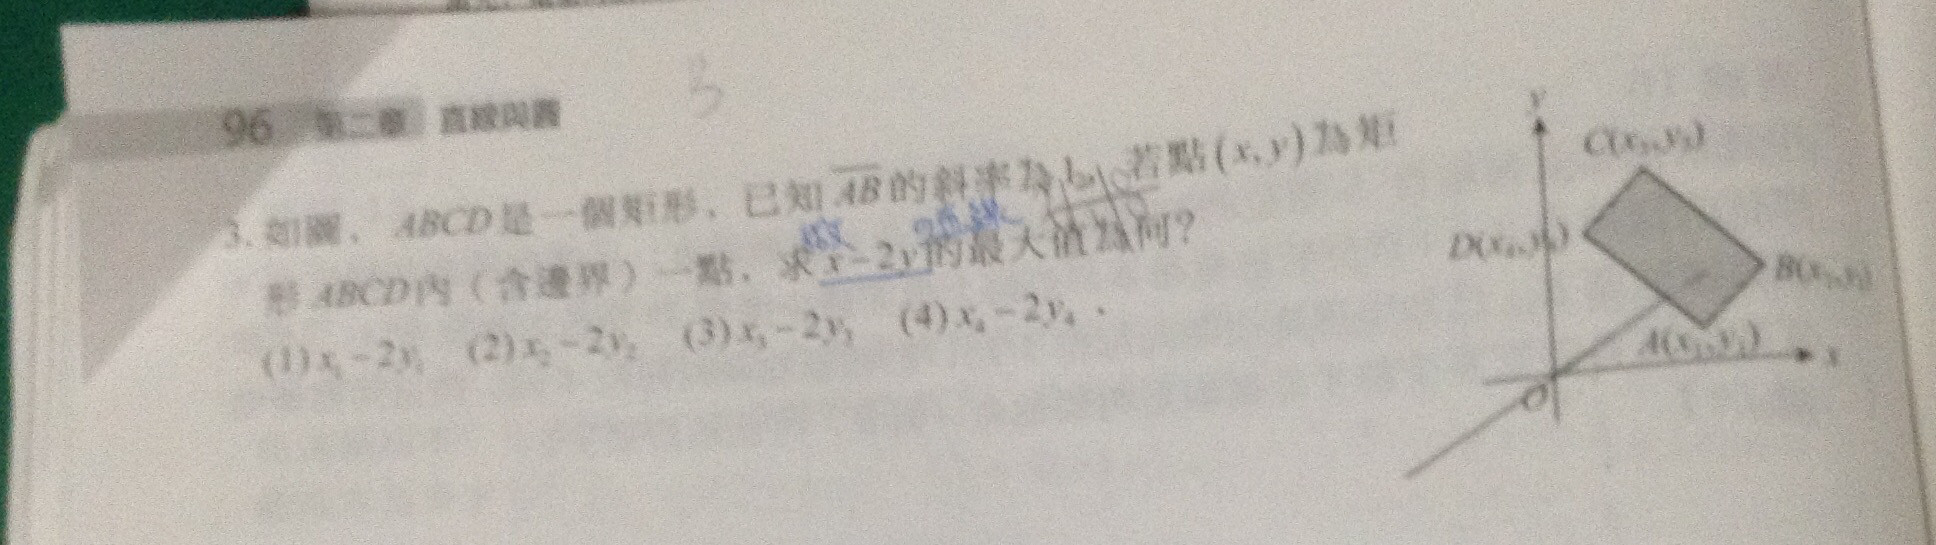 96 第二章 直線與圓
3. 如圖，ABCD是一個矩形，已知AB的斜率為1，若點(x,y)為矩
形ABCD內（含邊界）一點，求x-2y的最大值為何？
(1)x₁-2y₁ (2)x₂-2y₂ (3)x₃-2y₃ (4)x₄-2y₄．
y
C(x₃,y₃)
D(x₄,y₄)
B(x₂,y₂)
A(x₁,y₁)
x
O